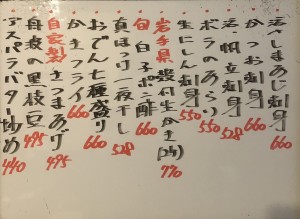 活〆しまあじ刺身 660
かつお刺身 660
活・帆立刺身 528
ボラのあらい 550
生にしん刺身 550
岩手県 殻付生かき(2ヶ) 770
旬 白子ポン酢 660
真ほっけ一夜干し 528
おでん七種盛り 660
かきフライ 660
自家製さつまあげ 495
自家製の黒枝豆 495
アスパラバター炒め 440